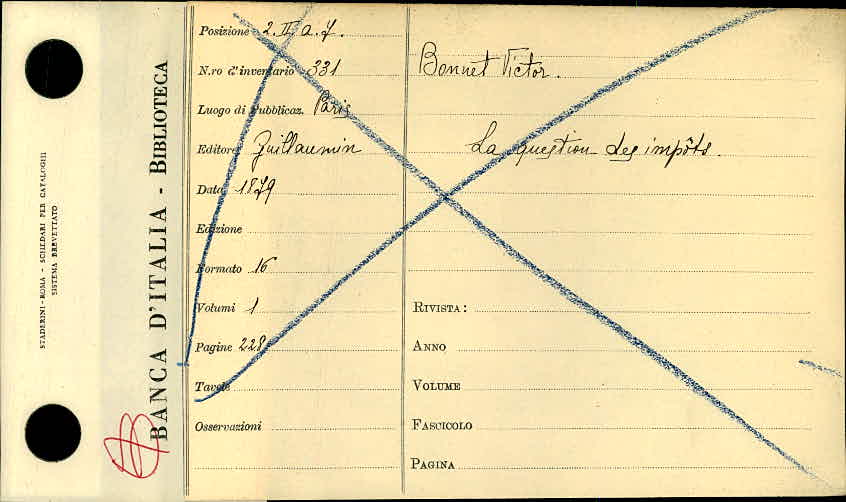 STADERINI - ROMA - SCHEDARI PER CATALOGHI
SISTEMA BREVETTATO
BANCA D'ITALIA - BIBLIOTECA
Posizione 2. II. a. 7.
N.ro d'inventario 331
Luogo di Pubblicaz. Paris
Editore Guillaumin
Data 1879
Edizione
Formato 16
Volumi 1
Pagine 228
Tavole
Osservazioni
Bonnet Victor.
La question des impôts.
RIVISTA:
ANNO
VOLUME
FASCICOLO
PAGINA